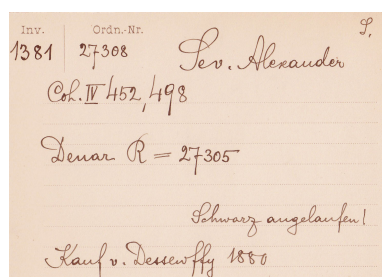 Inv. Ordn.-Nr. S.
1381 27308 Sev. Alexander
Coh. IV 452, 498
Denar R = 27305
Schwarz angelaufen!
Kauf v. Dessewffy 1880